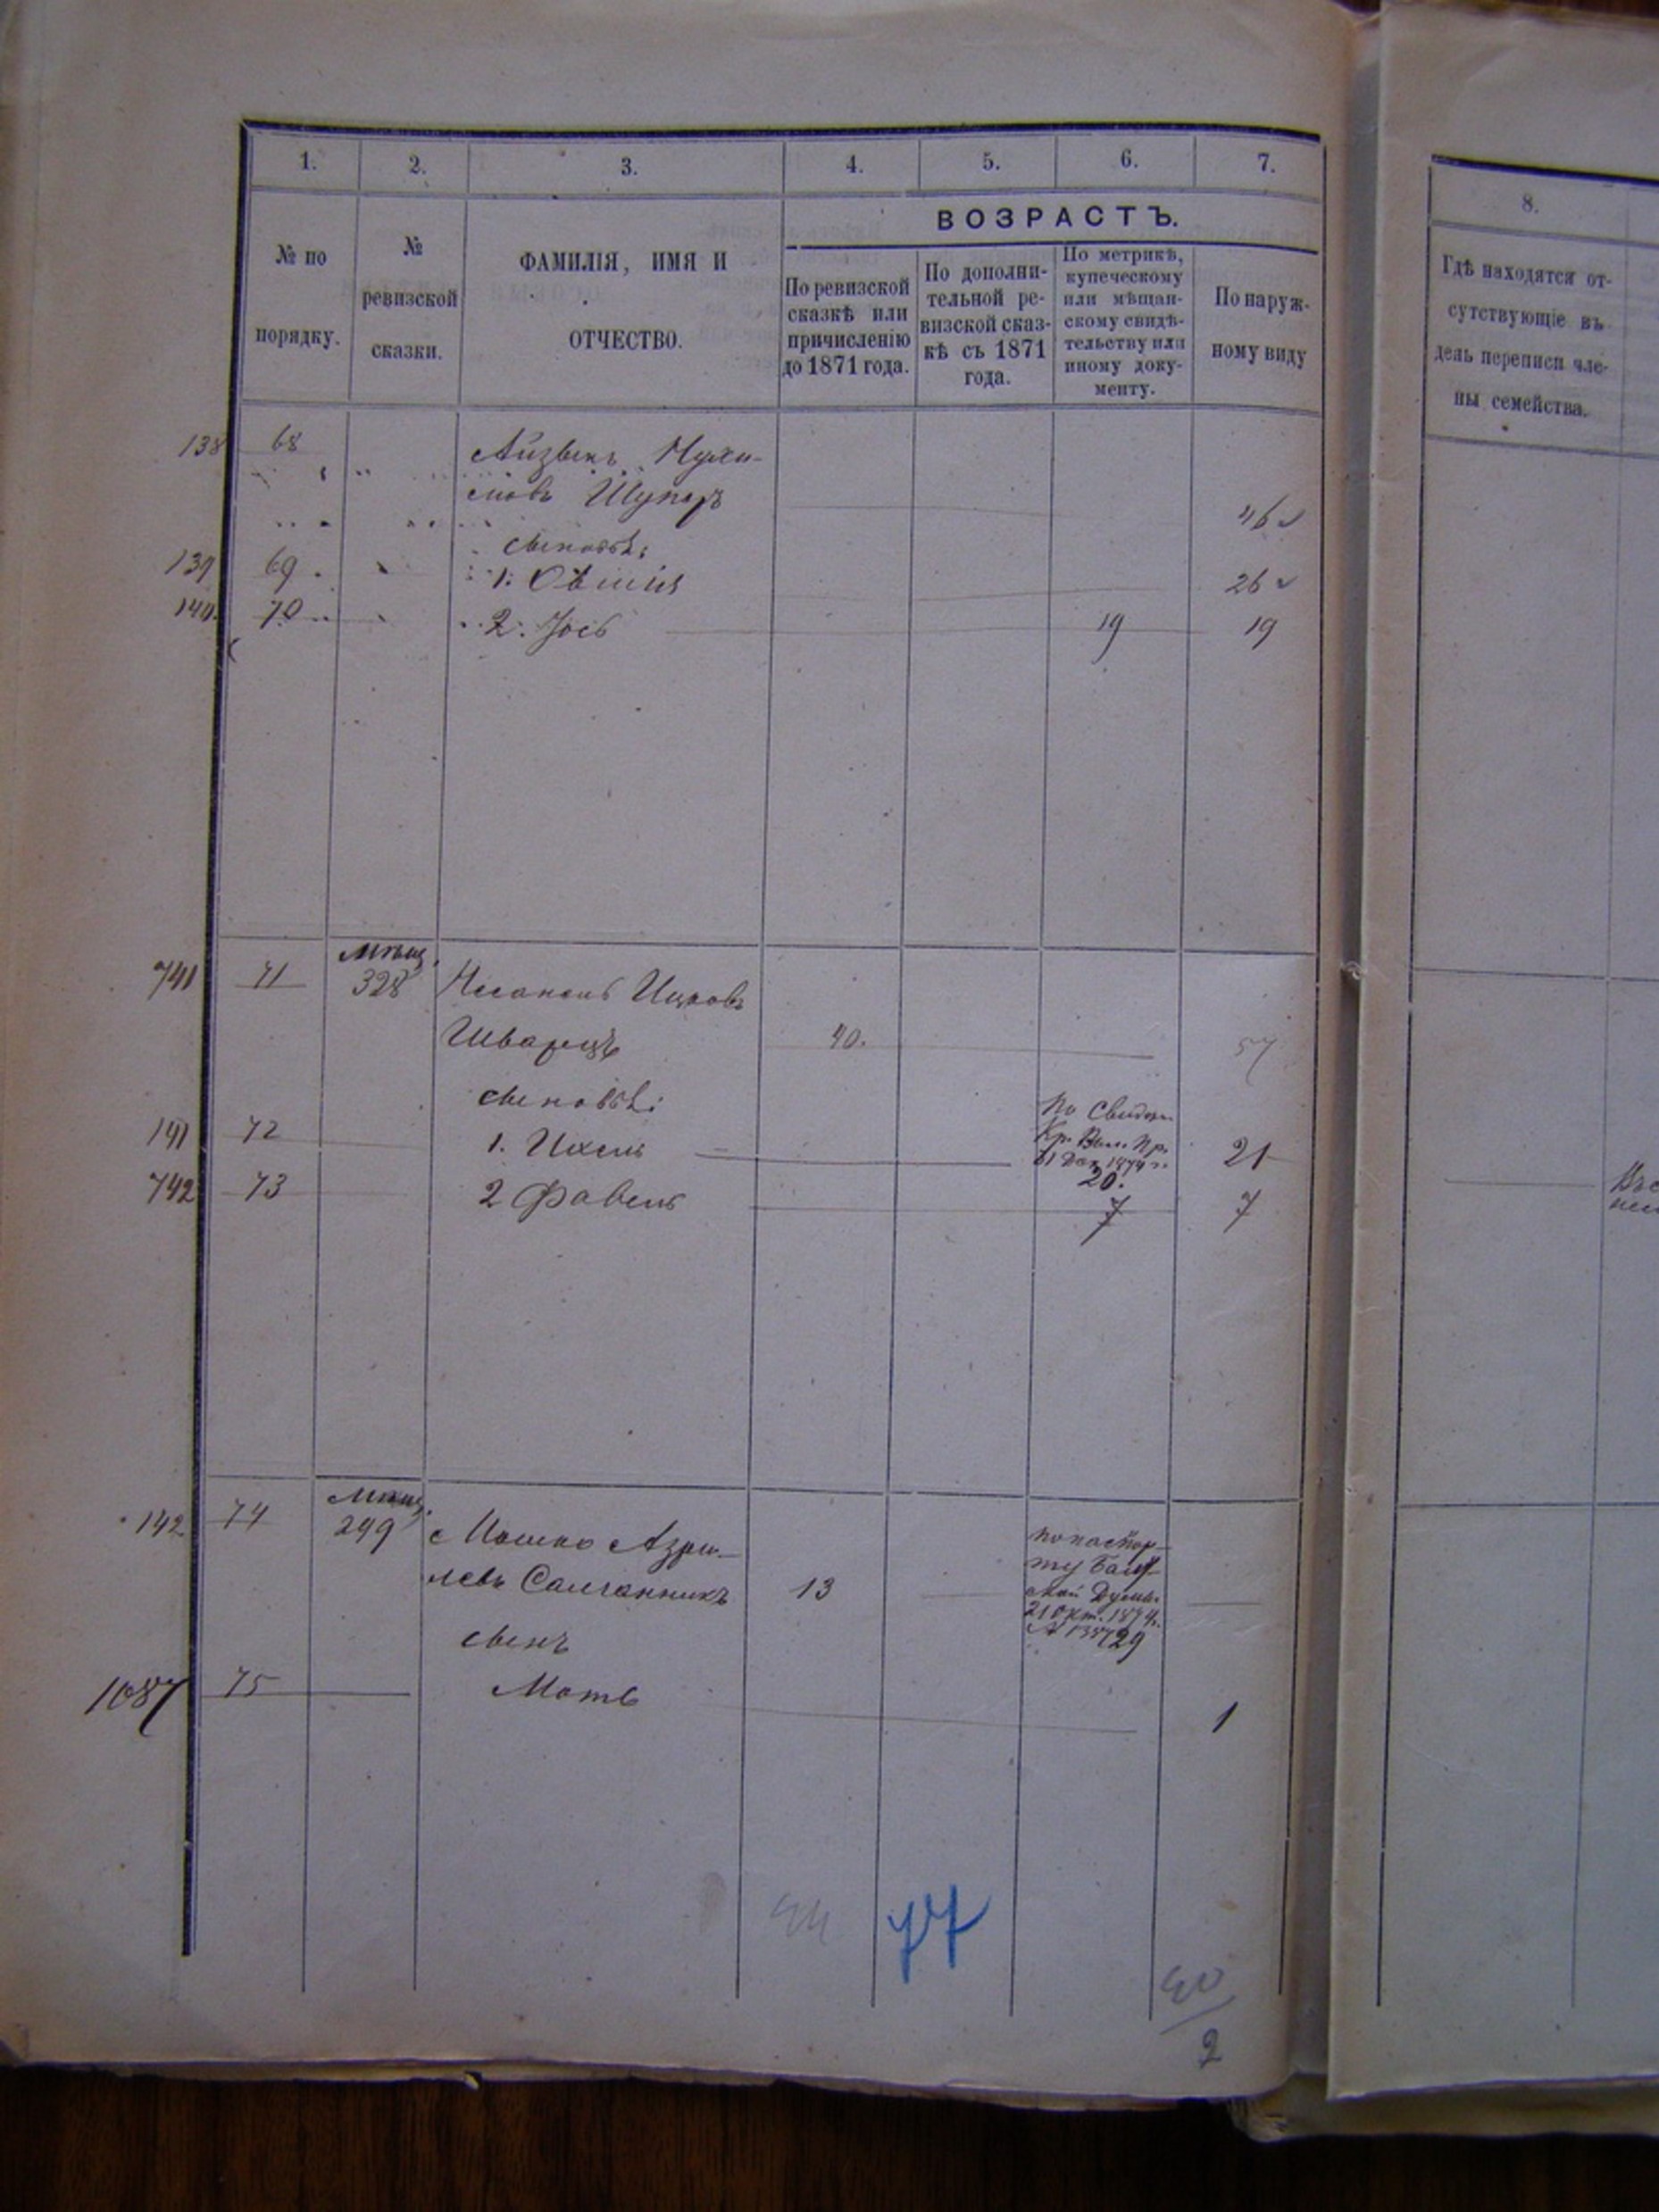 1. 2. 3. 4. 5. 6. 7.
ВОЗРАСТЪ.
№ по
порядку.
№
ревизской
сказки.
ФАМИЛІЯ, ИМЯ И
ОТЧЕСТВО.
По ревизской
сказкѣ или
причисленію
до 1871 года.
По дополни-
тельной ре-
визской сказ-
кѣ съ 1871
года.
По метрикѣ,
купеческому
или мѣщан-
скому свидѣ-
тельству или
иному доку-
менту.
По наруж-
ному виду
138 68
Шупаръ 46
сыновья:
139 69 1. Овшія 26
140 70 2. Іось 19 19
мѣщ.
741 71 328 Ицковъ
Шварцъ 40. 57
сыновья:
По Свидѣт.
141 72 1. Ихель 21
20.
742 73 2 Фавель 7 7
мѣщ.
142 74 299 Мошко Азри-
левъ Салганникъ 13
по паспор-
ту Балт
ской Думы
21 Окт. 1874 г.
29
сынъ
1087 75 Моть 1
77
40
2
8.
Гдѣ находятся от-
сутствующіе въ
день переписи чле-
ны семейства.